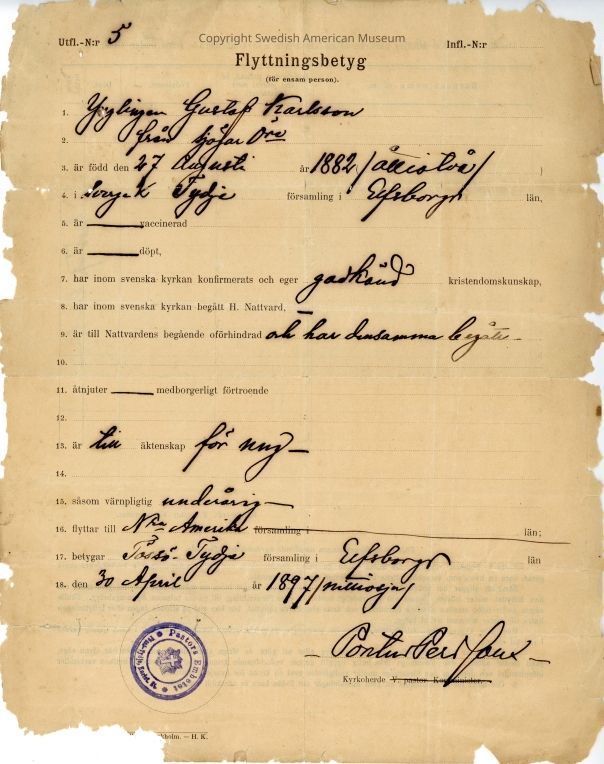 Copyright Swedish American Museum
Utfl.-N:r 5 Infl.-N:r
Flyttningsbetyg
(för ensam person).
1. Ynglingen Gustaf Karlsson
2. från
3. är född den 27 Augusti år 1882 (åttiotvå)
4. i Sverge Tydje församling i Elfsborgs län,
5. är vaccinerad
6. är döpt,
7. har inom svenska kyrkan konfirmerats och eger godkänd kristendomskunskap,
8. har inom svenska kyrkan begått H. Nattvard,
9. är till Nattvardens begående oförhindrad och har densamma begått
10.
11. åtnjuter medborgerligt förtroende
12.
13. är till äktenskap för ung
14.
15. såsom värnpligtig underårig
16. flyttar till N:ra Amerika församling i län;
17. betygar Tössö-Tydje församling i Elfsborgs län
18. den 30 April år 1897 (nittiosju)
Pastors Embetet
Kyrkoherde V. pastor Komminister.
holm. — H. K.